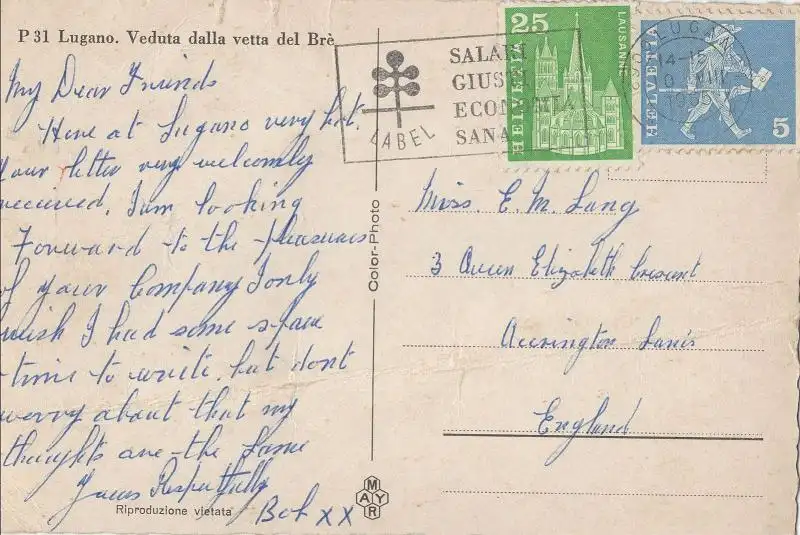 P 31 Lugano. Veduta dalla vetta del Brè
My Dear Friends
Here at Lugano very hot.
Your letter very welcomly
received, I am looking
Forward to the pleasures
of your Company I only
wish I had some spare
time to write, but dont
worry about that my
thoughts are the same
Yours Respectfully
Bob XX
Riproduzione vietata
Color-Photo
MAYR
LABEL
SALARI
GIUSTI
ECONOMIA
SANA
25
HELVETIA
LAUSANNE
HELVETIA
5
LUGANO
14-15
Miss E. M. Lang
3 Queen Elizabeth Crescent
Accrington Lancs
England